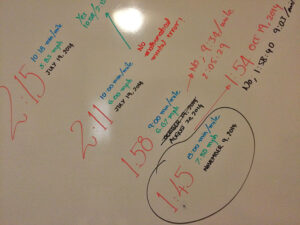 2:15
10:18 min/mile
5.83 mph
JULY 19, 2014
2:11
10:00 min/mile
6.00 mph
JULY 19, 2014
Yes
No
mathematical
error!
1:58
9:00 min/mile
6.67 mph
AUGUST 24, 2014
No, 9:34/mile
2:05:29
1:54 OCT 19, 2014
No, 1:58:40 9:03/mile
1:45
8:00 min/mile
7.50 mph
NOVEMBER 9, 2014